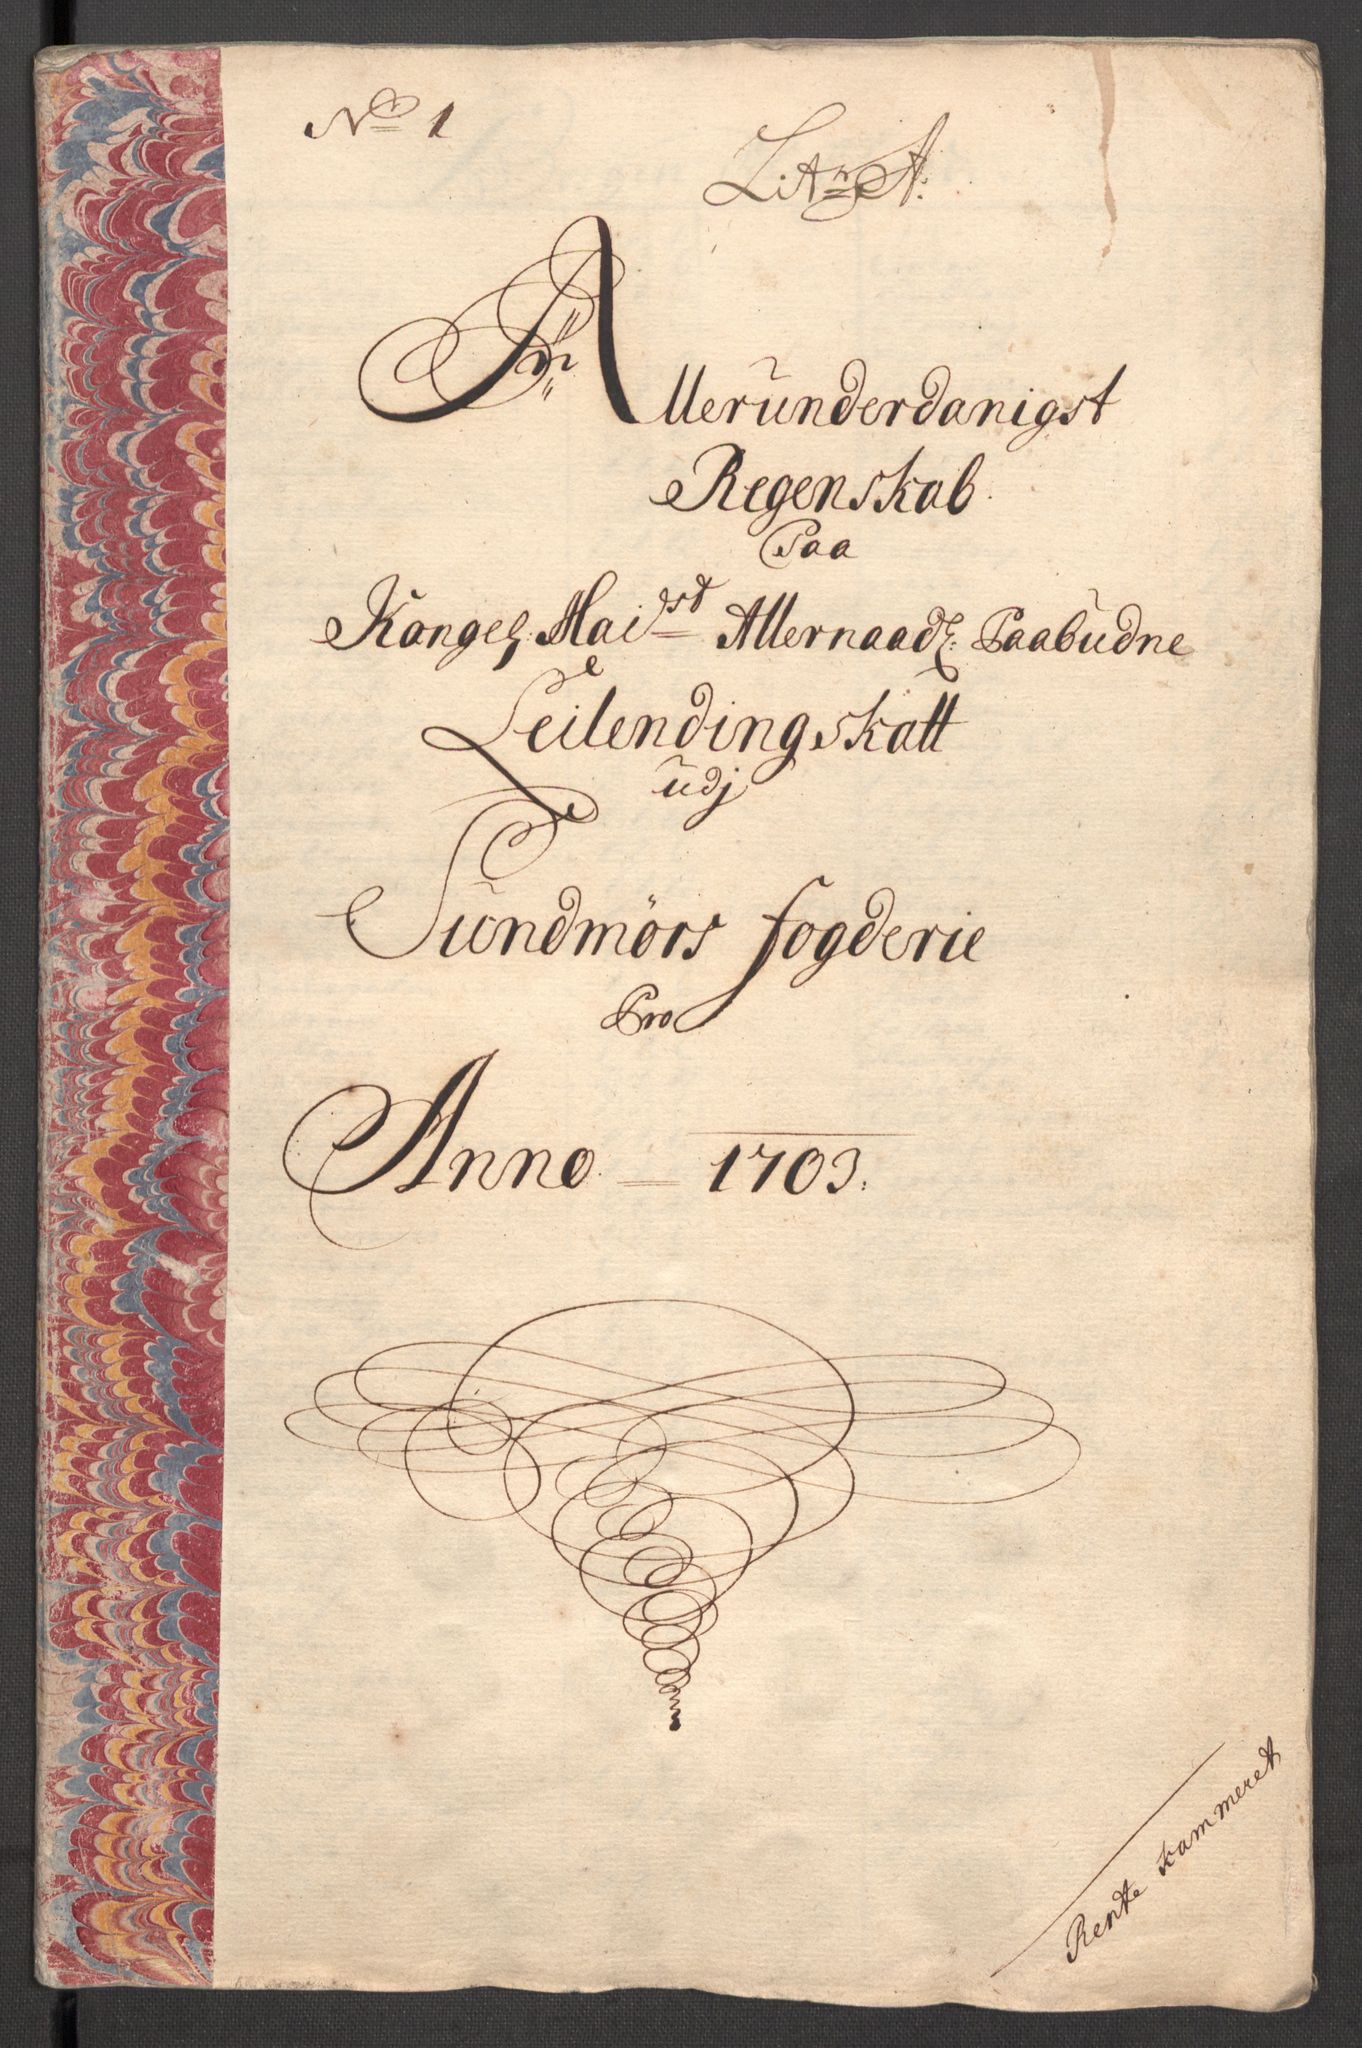 No 1
Litr A:
Allerunderdanigst
Regenskab
Paa
Kongel: Maist Allernaadl: Paabudne
Leilendingskatt
udj
Sundmörs fogderie
Pro
Anno 1703:
Rente kammeret